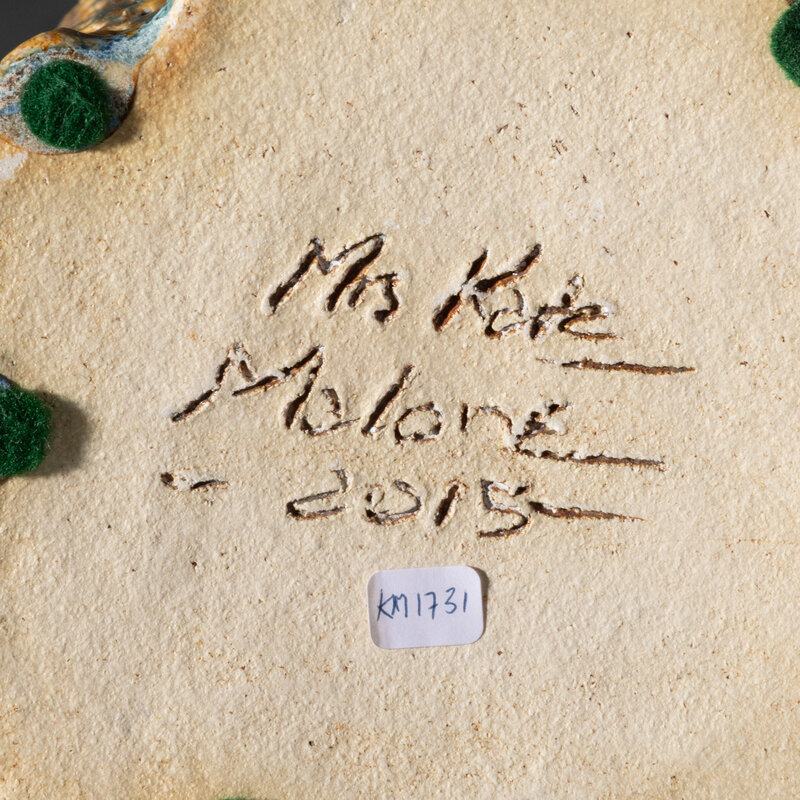 Mrs Kate
Malone
- 2015 -
KM1731